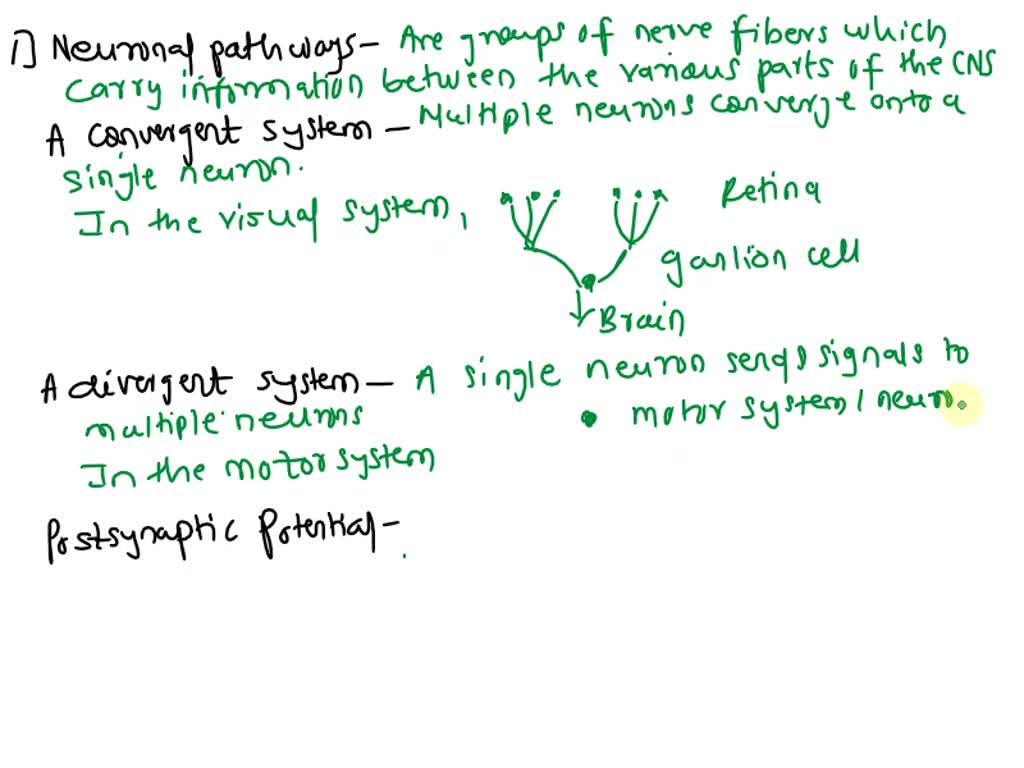 1) Neuronal pathways - Are groups of nerve fibers which
carry information between the various parts of the CNS
A convergent system - Multiple neurons converge onto a
single neuron.
In the visual system,
Retina
ganlion cell
Brain
A divergent system - A single neuron sends signals to
multiple neurons
motor system / neuro
In the motor system
Postsynaptic Potential -